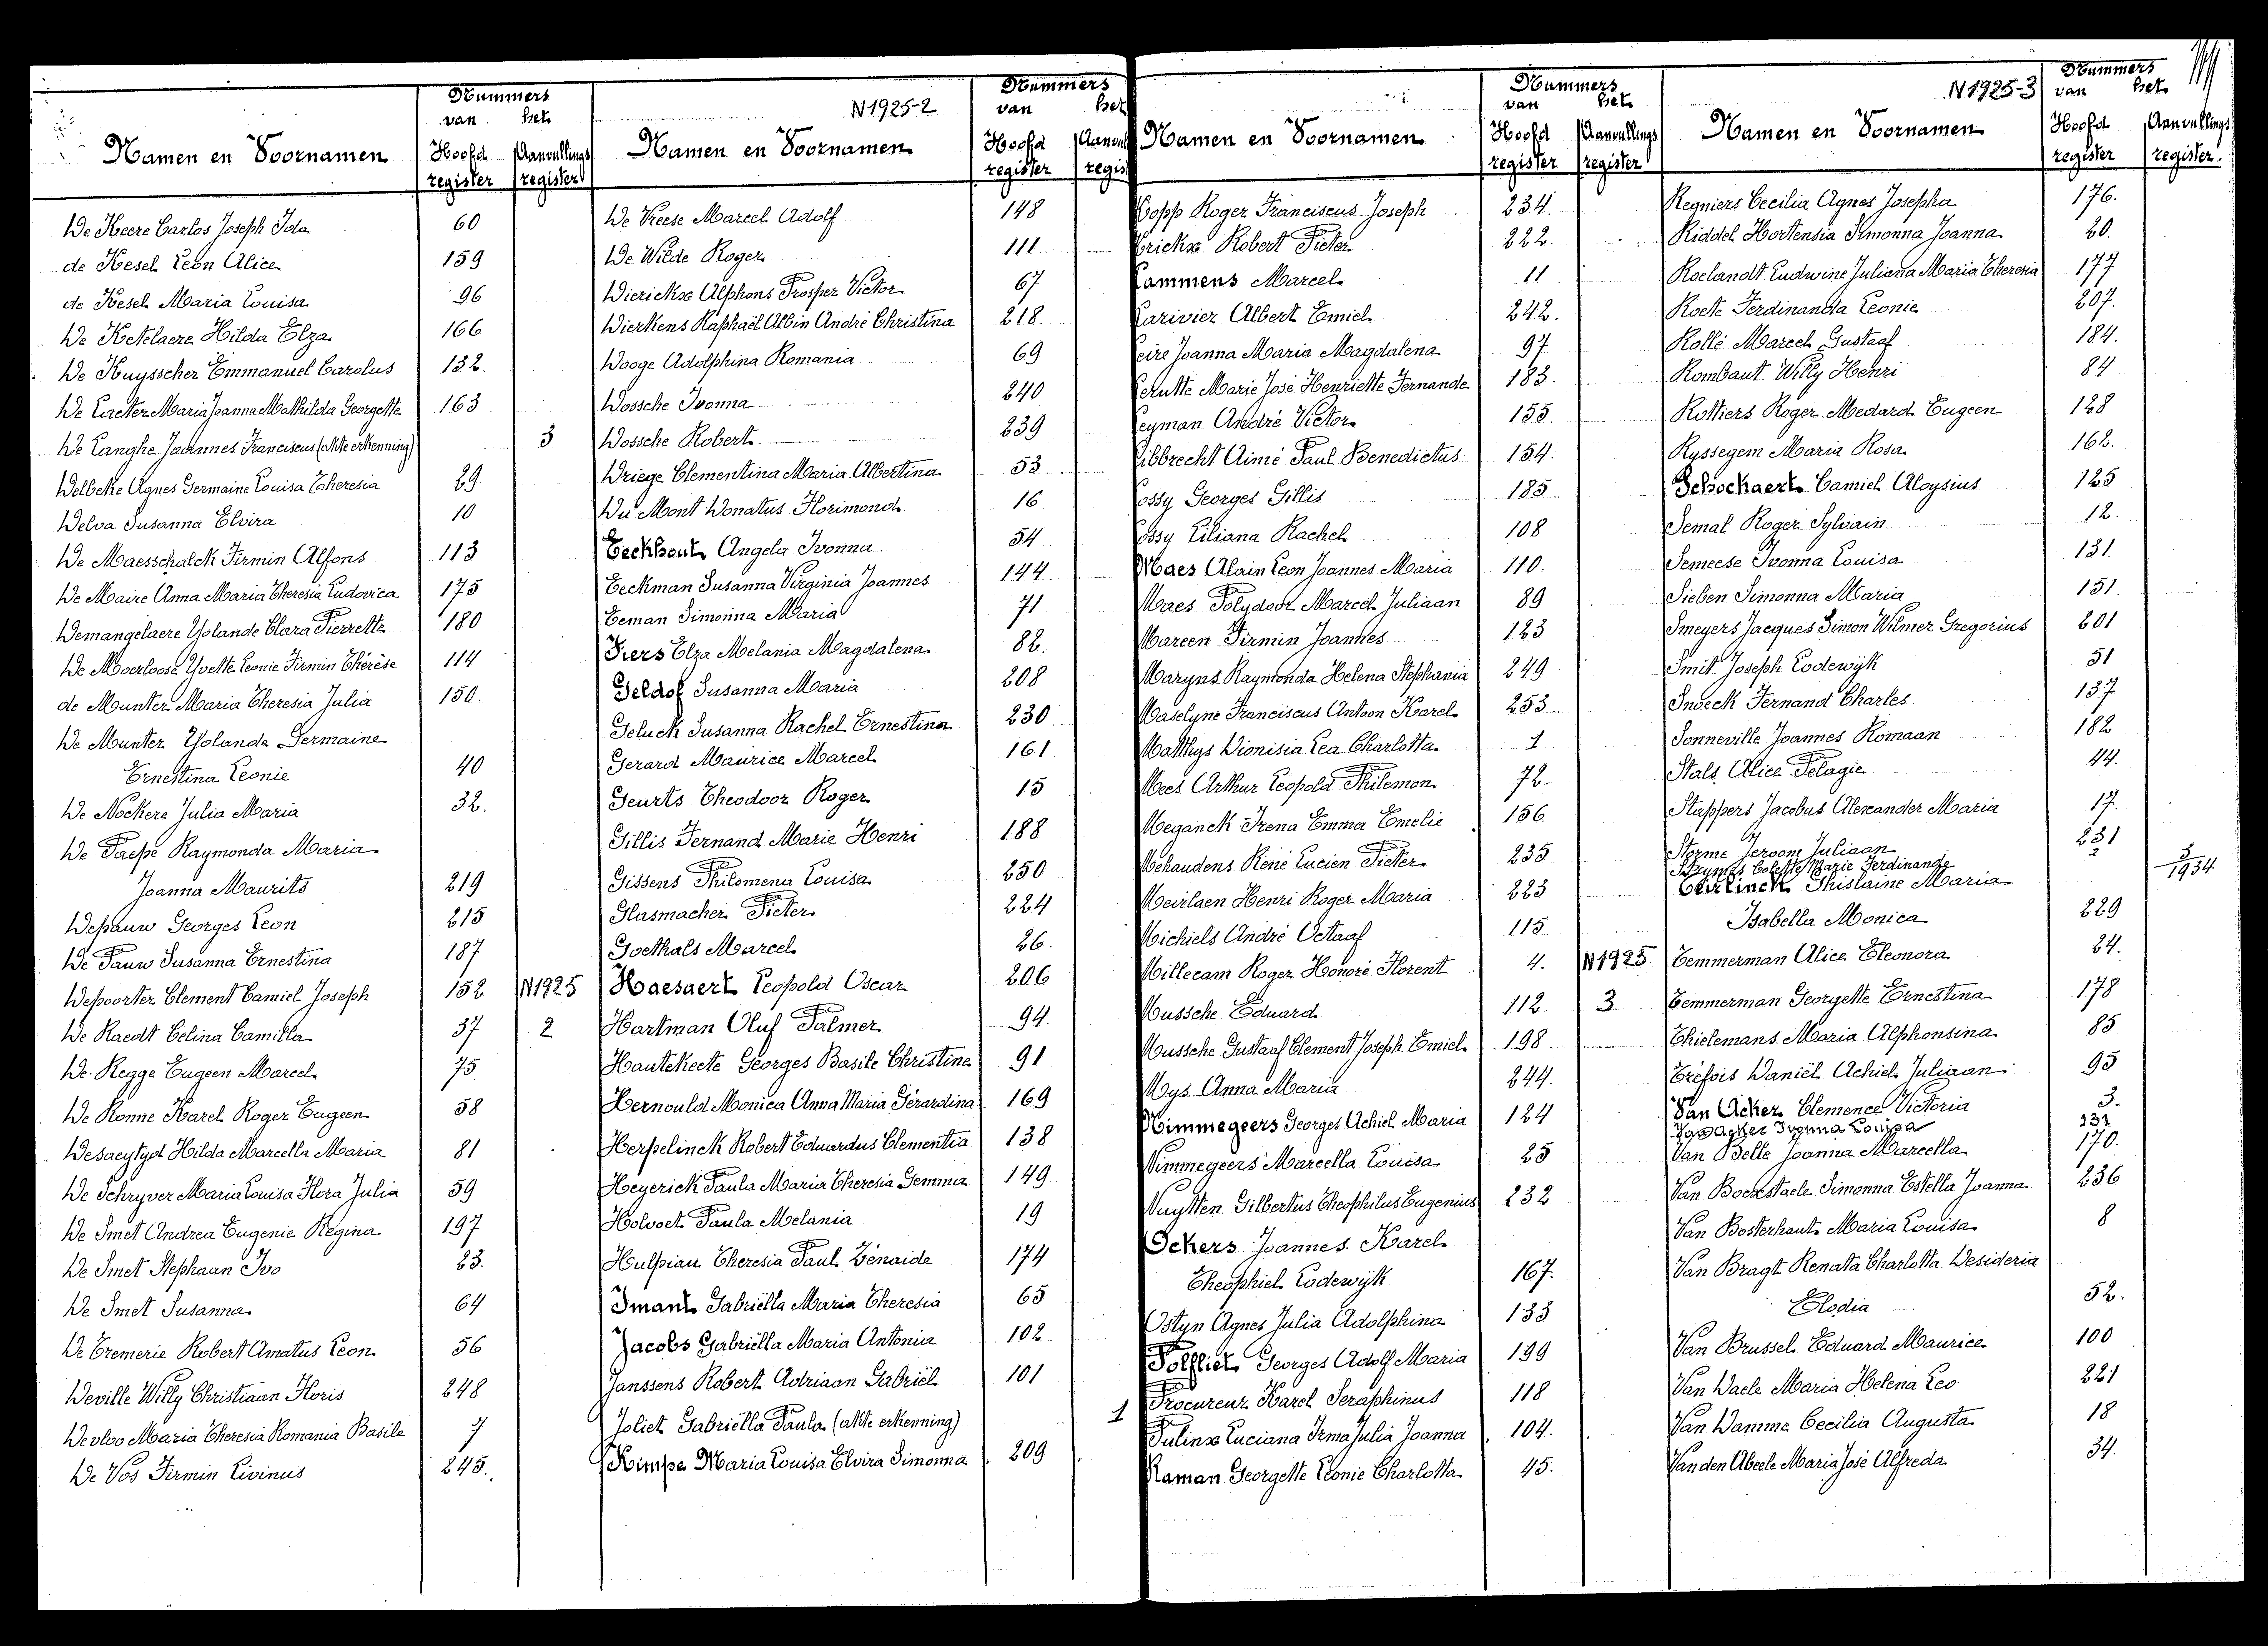 Nummers
van het
Namen en Voornamen Hoofd register Aanvullings register
De Keere Carlos Joseph Ida 60
de Kesel Leon Alice 159
de Kesel Maria Louisa 96
De Ketelaere Hilda Elza 166
De Kuysscher Emmanuel Carolus 132.
De Laeter Maria Joanna Mathilda Georgette 163
De Langhe Joannes Franciscus (akte erkenning) 3
Delbeke Agnes Germaine Louisa Theresia 29
Delva Susanna Elvira 10
De Maesschalck Firmin Alfons 113
De Maire Anna Maria Theresia Ludovica 175
Demangelaere Yolande Clara Pierrette 180
De Moerloose Yvette Leonie Firmin Thérèse 114
de Munter Maria Theresia Julia 150.
De Munter Yolande Germaine
Ernestina Leonie 40
De Nockere Julia Maria 32.
De Paepe Raymonda Maria
Joanna Maurits 219
Depauw Georges Leon 215
De Pauw Susanna Ernestina 187
Depoorter Clement Camiel Joseph 152 N1925
De Raedt Celina Camilla 37 2
De Regge Eugeen Marcel 75.
De Ronne Karel Roger Eugeen 58
Desaeytyd Hilda Marcella Maria 81
De Schryver Maria Louisa Flora Julia 59
De Smet Andrea Eugenie Regina 197
De Smet Stephaan Ivo 23.
De Smet Susanna 64
De Temerie Robert Amatus Leon 56
Deville Willy Christiaan Floris 248
Devloo Maria Theresia Romania Basile 7
De Vos Firmin Livinus 245.
N1925-2
Nummers
van het
Namen en Voornamen Hoofd register Aanvul regis
De Vreese Marcel Adolf 148
De Wilde Roger 111
Dierickx Alphons Prosper Victor 67
Dierkens Raphaël Albin André Christina 218.
Dooge Adolphina Romania 69
Dossche Ivonna 240
Dossche Robert 239
Driege Clementina Maria Albertina 53
Du Mont Donatus Florimond 16
Eeckhout Angela Ivonna. 54
Eeckman Susanna Virginia Joannes 144
Eeman Simonna Maria 71
Fiers Elza Melania Magdalena 82.
Geldof Susanna Maria 208
Geluck Susanna Rachel Ernestina 230
Gerard Maurice Marcel 161
Geurts Theodoor Roger 15
Gillis Fernand Marie Henri 188
Gissens Philomena Louisa 250
Glasmacher Pieter 224
Goethals Marcel 26.
Haesaert Leopold Oscar 206
Hartman Oluf Palmer 94.
Hautekeete Georges Basile Christine 91
Hernould Monica Anna Maria Gérardina 169
Herpelinck Robert Eduardus Clementia 138
Heyerick Paula Maria Theresia Gemma 149
Holvoet Paula Melania 19
Hulpiau Theresia Paul Zénaide 174
Imant Gabriëlla Maria Theresia 65
Jacobs Gabriëlla Maria Antonia 102
Janssens Robert Adriaan Gabriël 101
Joliet Gabriëlla Paula (akte erkenning) 1
Kimpe Maria Louisa Elvira Simonna 209
Nummers
van het
Namen en Voornamen Hoofd register Aanvullings register
Kopp Roger Franciscus Joseph 234.
Krickx Robert Pieter 222.
Lammens Marcel 11
Larivier Albert Emiel 242.
Leire Joanna Maria Magdalena 97
Lerutte Marie José Henriette Fernande 183.
Leyman André Victor 155
Libbrecht Aimé Paul Benedictus 154.
Lossy Georges Gillis 185
Lossy Liliana Rachel 108
Maes Alain Leon Joannes Maria 110.
Maes Polydoor Marcel Juliaan 89
Mareen Firmin Joannes 123
Maryns Raymonda Helena Stephania 249
Maselyne Franciscus Antoon Karel 253.
Matthys Dionisia Lea Charlotta 1
Mees Arthur Leopold Philemon 72.
Meganck Irena Emma Emelie 156
Mehaudens René Lucien Pieter 235
Meirlaen Henri Roger Maria 223
Michiels André Octaaf 115
Millecam Roger Honoré Florent 4. N1925
Mussche Eduard 112. 3
Mussche Gustaaf Clement Joseph Emiel 198
Mys Anna Maria 244.
Nimmegeers Georges Achiel Maria 124
Nimmegeers Marcella Louisa 25
Nuytten Gilbertus Theophilus Eugenius 232
Ockers Joannes Karel
Theophiel Lodewijk 167.
Ostyn Agnes Julia Adolphina 133
Polfliet Georges Adolf Maria 199
Procureur Karel Seraphinus 118
Pulinx Luciana Irma Julia Joanna 104.
Raman Georgette Leonie Charlotta 45.
N1925-3
Nummers
van het
Namen en Voornamen Hoofd register Aanvullings register.
Regniers Cecilia Agnes Josepha 176.
Riddel Hortensia Simonna Joanna 20
Roelandt Ludwine Juliana Maria Theresia 177
Roete Ferdinanda Leonie 207.
Rollé Marcel Gustaaf 184.
Rombaut Willy Henri 84
Rottiers Roger Medard Eugeen 128
Ryssegem Maria Rosa 162.
Schockaert Camiel Aloysius 125
Semal Roger Sylvain 12.
Semeese Ivonna Louisa 131
Sieben Simonna Maria 151.
Smeyers Jacques Simon Wilmer Gregorius 201
Smit Joseph Lodewijk 51
Snoeck Fernand Charles 137
Sonneville Joannes Romaan 182
Stals Alice Pelagie 44.
Stappers Jacobus Alexander Maria 17.
Storme Jeroom Juliaan 231
Colette Marie Ferdinande 3/1934
Teirlinck Ghislaine Maria
Isabella Monica 229
Temmerman Alice Eleonora 24.
Temmerman Georgette Ernestina 178
Thielemans Maria Alphonsina 85
Tréfois Daniël Achiel Juliaan 95
Van Acker Clemence Victoria 3.
Van Acker Ivonna Louisa 131
Van Belle Joanna Marcella 170.
Van Bockstaele Simonna Estella Joanna 236
Van Bosterhaut Maria Louisa 8
Van Bragt Renata Charlotta Desideria
Elodia 52.
Van Brussel Eduard Maurice 100
Van Daele Maria Helena Leo 221
Van Damme Cecilia Augusta 18
Van den Abeele Maria José Alfreda 34.